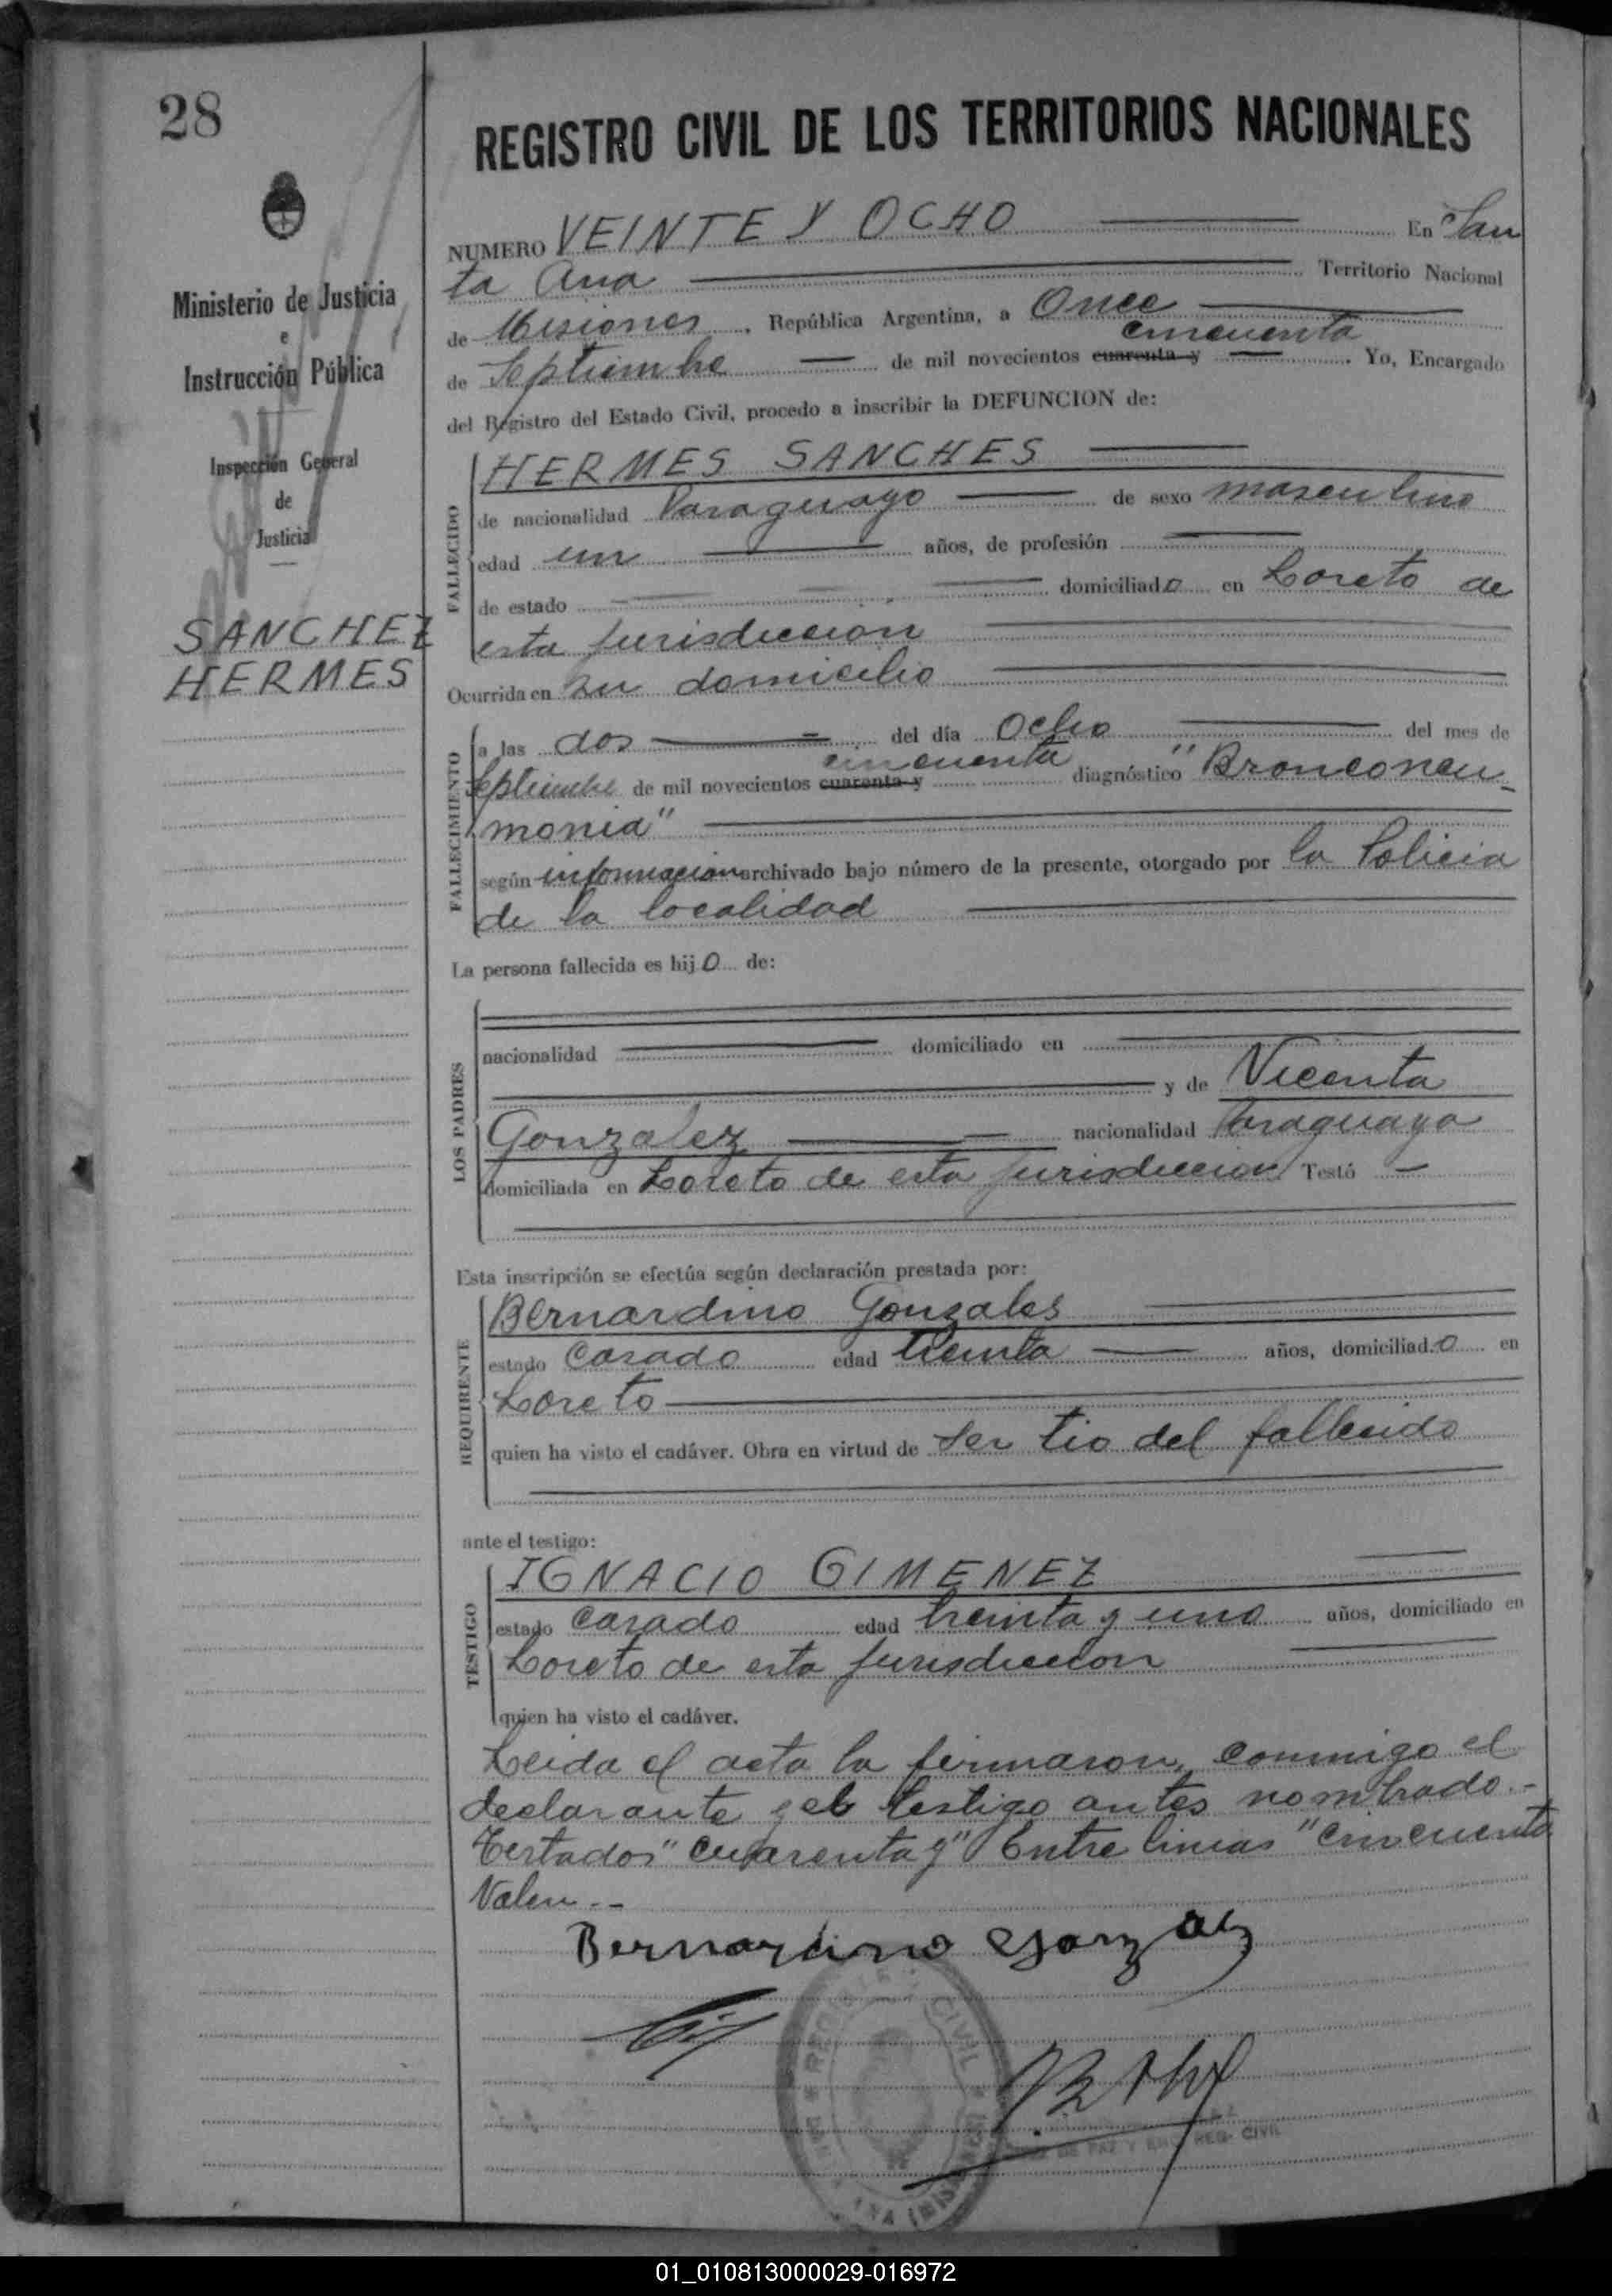 28
Ministerio de Justicia
e
Instrucción Pública
Inspección General
de
Justicia
SANCHEZ
HERMES
REGISTRO CIVIL DE LOS TERRITORIOS NACIONALES
NUMERO VEINTE Y OCHO En San
ta Ana Territorio Nacional
de Misiones, República Argentina, a Once
cincuenta
de Septiembre de mil novecientos cuarenta y . Yo, Encargado
del Registro del Estado Civil, procedo a inscribir la DEFUNCION de:
FALLECIDO
HERMES SANCHES
de nacionalidad Paraguayo de sexo masculino
edad un años, de profesión
de estado domiciliado en Loreto de
esta jurisdiccion
Ocurrida en su domicilio
FALLECIMIENTO
a las dos del día Ocho del mes de
cincuenta
Septiembre de mil novecientos cuarenta y diagnóstico "Bronconeu-
monia"
según informacion archivado bajo número de la presente, otorgado por la Policia
de la localidad
La persona fallecida es hijo de:
LOS PADRES
nacionalidad domiciliado en
y de Vicenta
Gonzalez nacionalidad Paraguaya
domiciliada en Loreto de esta jurisdiccion Testó
Esta inscripción se efectúa según declaración prestada por:
REQUIRENTE
Bernardino Gonzales
estado Casado edad treinta años, domiciliado en
Loreto
quien ha visto el cadáver. Obra en virtud de ser tio del fallecido
ante el testigo:
TESTIGO
IGNACIO GIMENEZ
estado Casado edad treinta y uno años, domiciliado en
Loreto de esta jurisdiccion
quien ha visto el cadáver.
Leida el acta la firmaron conmigo el
declarante y el testigo antes nombrado.-
Testados "cuarenta y" Entre lineas "cincuenta
Valen.-
Bernardino Gonzalez
REGISTRO CIVIL
DE PAZ Y ENC. REG. CIVIL
01_010813000029-016972